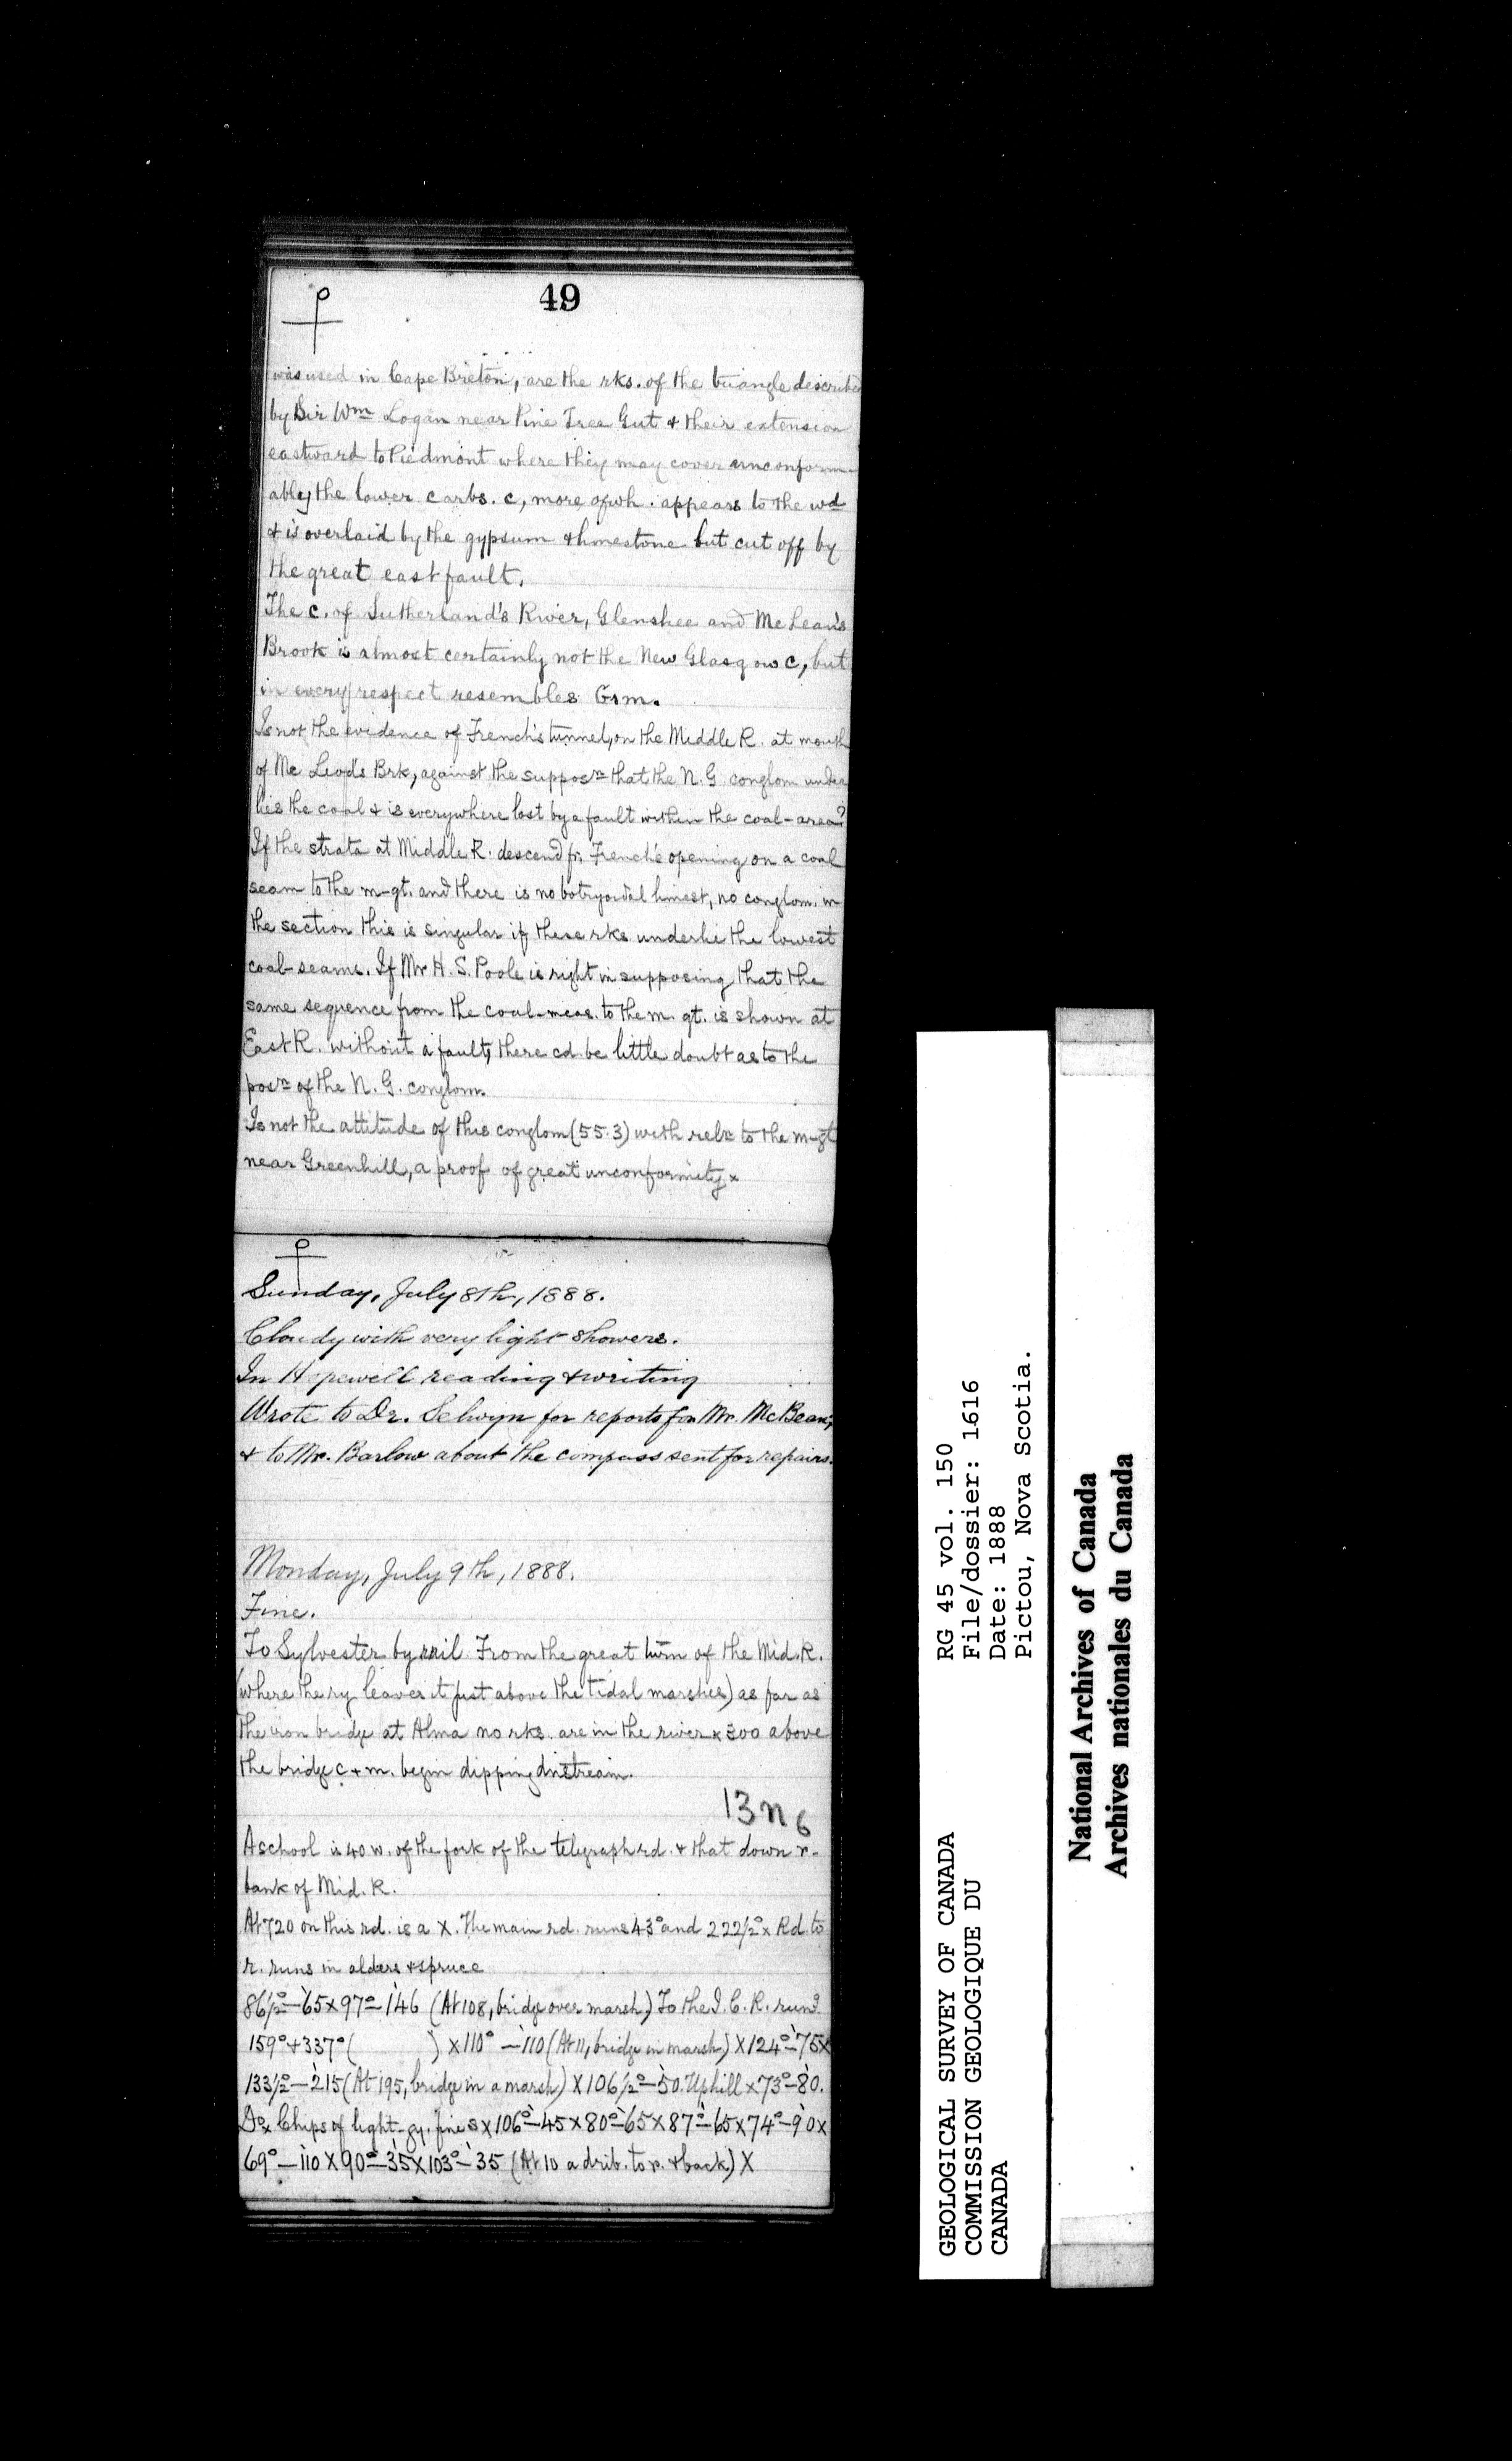 49
was used in Cape Breton, are the rks. of the triangle described
by Sir Wm Logan near Pine Tree Gut & their extension
eastward to Piedmont where they may cover unconform-
ably the lower carbs. c, more of wh. appears to the wd
& is overlaid by the gypsum & limestone but cut off by
the great east fault.
The c. of Sutherland's River, Glenshee and McLean's
Brook is almost certainly not the New Glasgow c, but
in every respect resembles G1m.
Is not the evidence of French's tunnel, on the Middle R. at mouth
of McLeod's Brk, against the supposn that the N. G. conglom under
lies the coal & is everywhere lost by a fault within the coal-area?
If the strata at Middle R. descend fr. French's opening on a coal
seam to the m-gt. and there is no botryoidal limest, no conglom. in
the section this is singular if these rks underlie the lowest
coal-seams. If Mr H. S. Poole is right in supposing that the
same sequence from the coal-meas. to the m. gt. is shown at
East R. without a fault, there cd. be little doubt as to the
posn of the N. G. conglom.
Is not the attitude of this conglom (55.3) with reln to the m-gt
near Greenhill, a proof of great unconformity x
Sunday, July 8th, 1888.
Cloudy with very light showers.
In Hopewell reading & writing
Wrote to Dr. Selwyn for reports for Mr. McBean;
& to Mr. Barlow about the compass sent for repairs.
Monday, July 9th, 1888.
Fine.
To Sylvester by rail. From the great turn of the Mid. R.
(where the ry leaves it just above the tidal marshes) as far as
the iron bridge at Alma no rks. are in the river x 300 above
the bridge c & m. begin dipping dnstream.
13 n 6
A school is 40 w. of the fork of the telegraph rd. & that down r.
bank of Mid. R.
At 720 on this rd. is a X. The main rd. runs 43° and 222½° x Rd. to
r. runs in alders & spruce
86½°–65 x 97°–146 (At 108, bridge over marsh) To the I. C. R. runs
159° + 337° ( ) x 110° – 110 (At 11, bridge in marsh) X 124°–75 x
133½°–215 (At 195, bridge in a marsh) X 106½°–50. Uphill x 73°–80.
Do x Chips of light-gy. fine s x 106°–45 x 80°–65 x 87°–65 x 74°–90 x
69°–110 X 90°–35 x 103°–35 (At 10 a d rib. to r. & back) X
RG 45 vol. 150
File/dossier: 1616
Date: 1888
Pictou, Nova Scotia.
GEOLOGICAL SURVEY OF CANADA
COMMISSION GEOLOGIQUE DU
CANADA
National Archives of Canada
Archives nationales du Canada